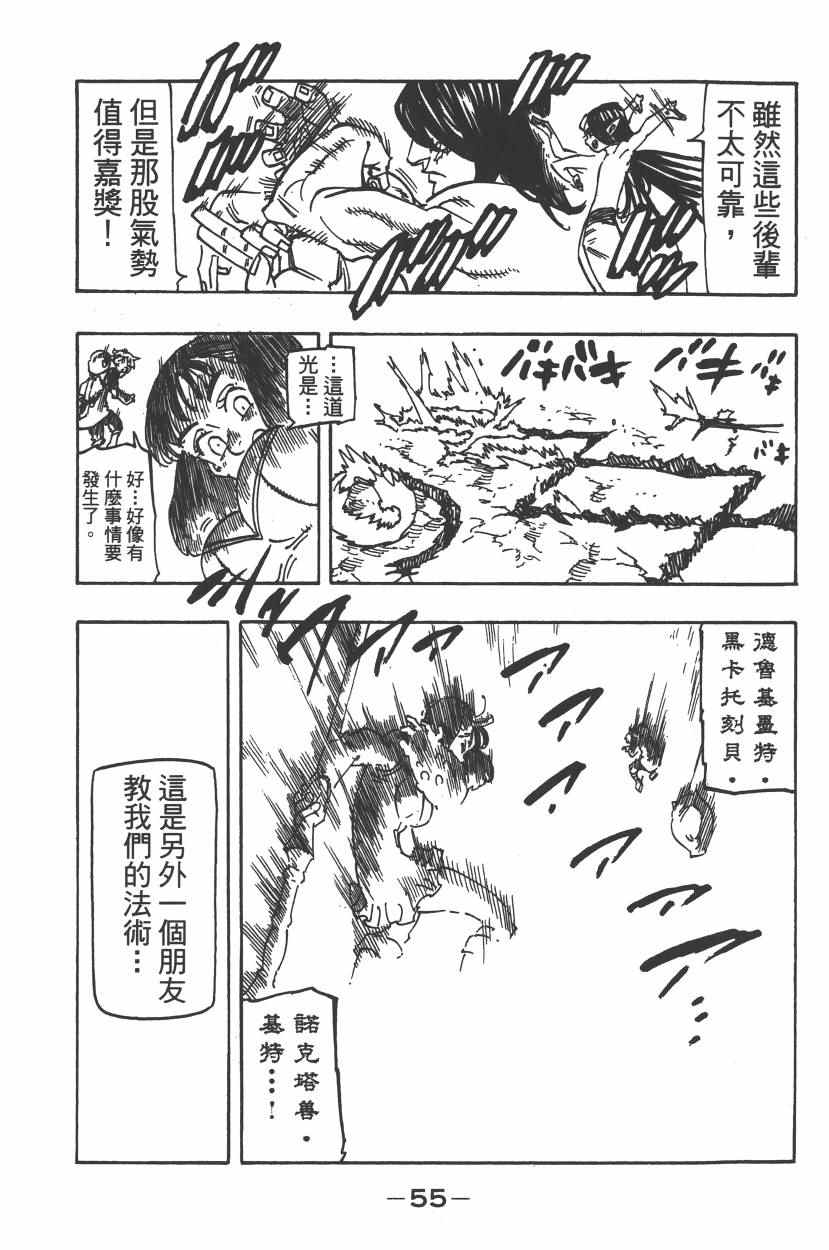 雖然這些後輩
不太可靠，
但是那股氣勢
值得嘉獎！
バキバキ
バキ
バキ
…這道
光是…
好…好像有
什麼事情要
發生了。
德魯基墨特・
黑卡托刻貝・
諾克塔兽・
基特…！
這是另外一個朋友
教我們的法術…
—55—